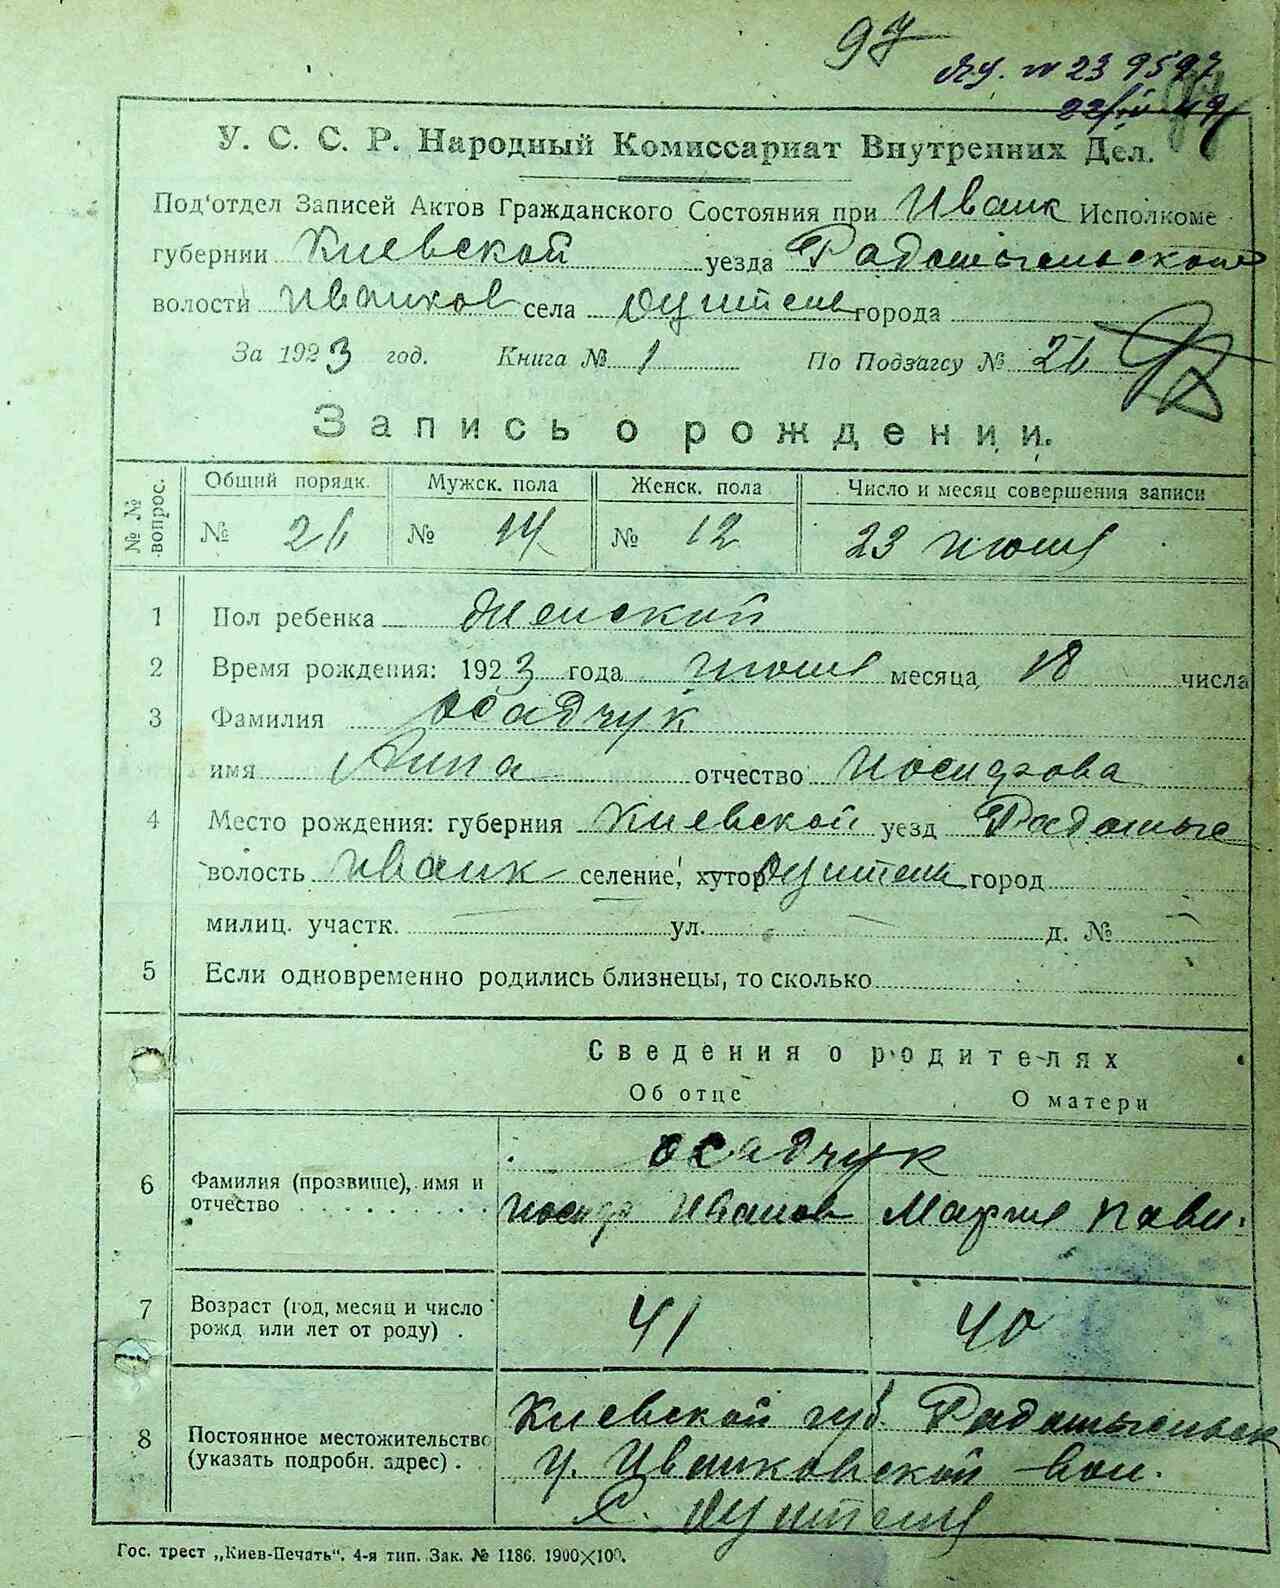 97
№ 23 9597
У. С. С. Р. Народный Комиссариат Внутренних Дел.
Под'отдел Записей Актов Гражданского Состояния при Иванк Исполкоме
губернии Киевской уезда Радомысльской
волости Иванков села города
За 1923 год. Книга № 1 По Подзагсу № 26
97
Запись о рождении.
№ № вопрос. Общий порядк. Мужск. пола Женск. пола Число и месяц совершения записи
№ 26 № 14 № 12 23 июня
1 Пол ребенка женской
2 Время рождения: 1923 года июня месяца 18 числа
3 Фамилия Осадчук
имя Анна отчество Иосифова
4 Место рождения: губерния Киевской уезд Радомысл
волость Иванк селение, хутор город
милиц. участк. ул. д. №
5 Если одновременно родились близнецы, то сколько
Сведения о родителях
Об отце О матери
Осадчук
6 Фамилия (прозвище), имя и отчество Иосиф Иванов Мария Павл.
7 Возраст (год, месяц и число рожд или лет от роду) . 41 40
8 Постоянное местожительство (указать подробн. адрес) . Киевской губ. Радомысльск
у. Иванковской вол.
с.
Гос. трест „Киев-Печать“. 4-я тип. Зак. № 1186. 1900×100.